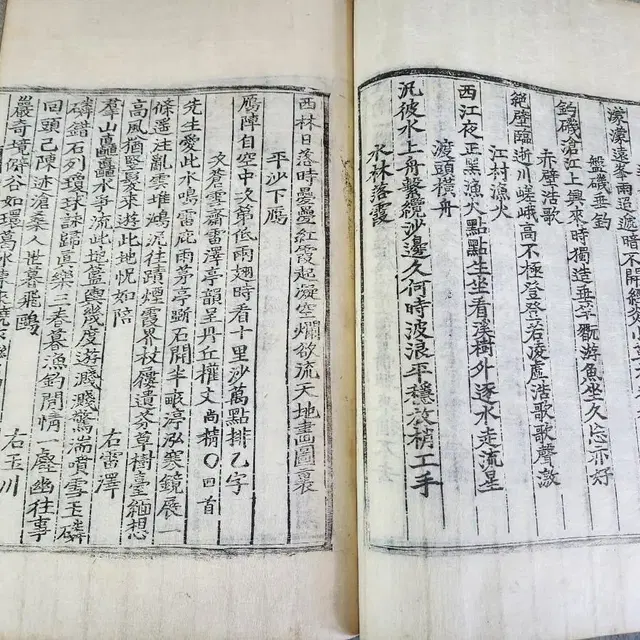 濛濛遠峯雨迢遞時不開
盤磯垂釣
釣磯滄江上興來時獨造垂竿翫游魚坐久忘亦好
赤壁浩歌
絕壁臨逝川嵯峨高不極登登若凌虛浩歌歌聲激
江村漁火
西江夜正黑漁火點點生坐看溪樹外逐水走流星
渡頭橫舟
汎彼水上舟繫纜沙邊久何時波浪平穩放梢工手
水林落霞
西林日落時疊疊紅霞起凝空爛欲流天地畵圖裏
平沙下鴈
鴈陣自空中次第低兩翅時看十里沙萬點排乙字
次蒼雲齋雷澤亭韻呈丹丘權丈尚精〇四首
先生愛此水鳴雷庇雨茅亭斲石開半畝渟泓寒鏡展一
條遥注亂雲堆鴻泥往蹟煙霞界杖屨遺芬草樹臺緬想
高風猶竪髮來遊此地怳如陪 右雷澤
羣山矗矗水爭流此地盤輿幾度遊濺濺驚湍噴雪玉磷
磷錯石列瓊球詠歸眞樂三春暮漁釣閒情一壑幽往事
回頭已陳迹滄桑人世暮飛鷗 右玉川
巖奇境僻谷如環萬水